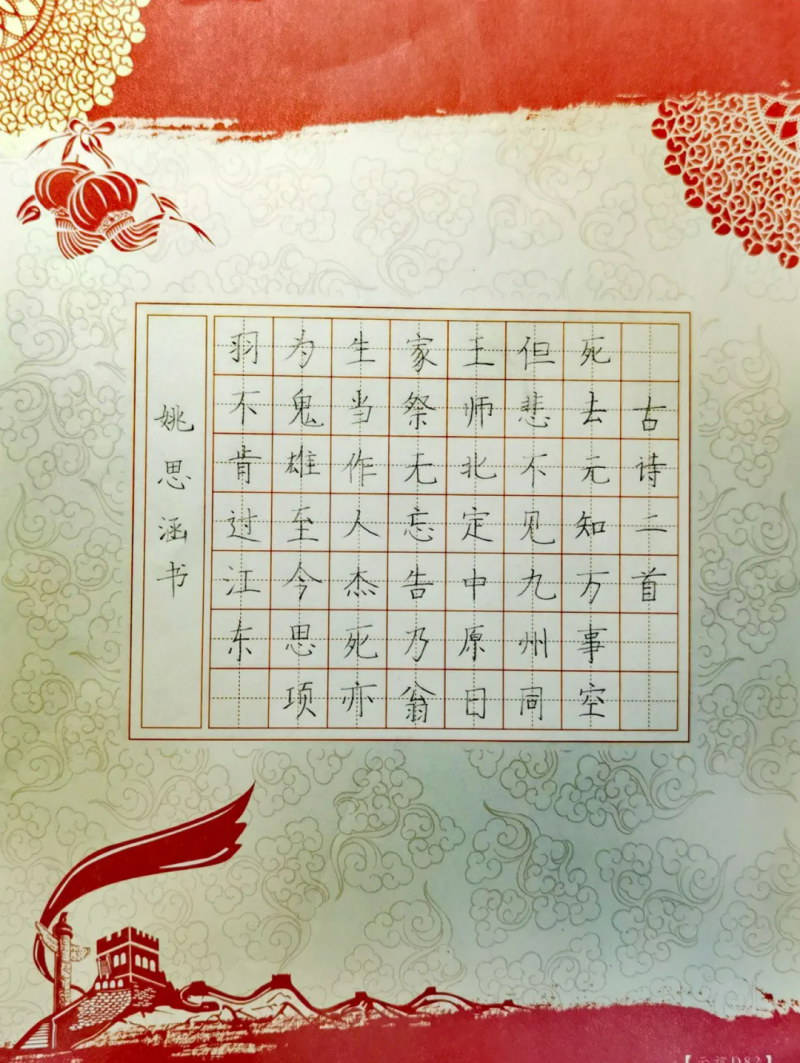 古诗二首
死去元知万事空
但悲不见九州同
王师北定中原日
家祭无忘告乃翁
生当作人杰死亦
为鬼雄至今思项
羽不肯过江东
姚思涵书